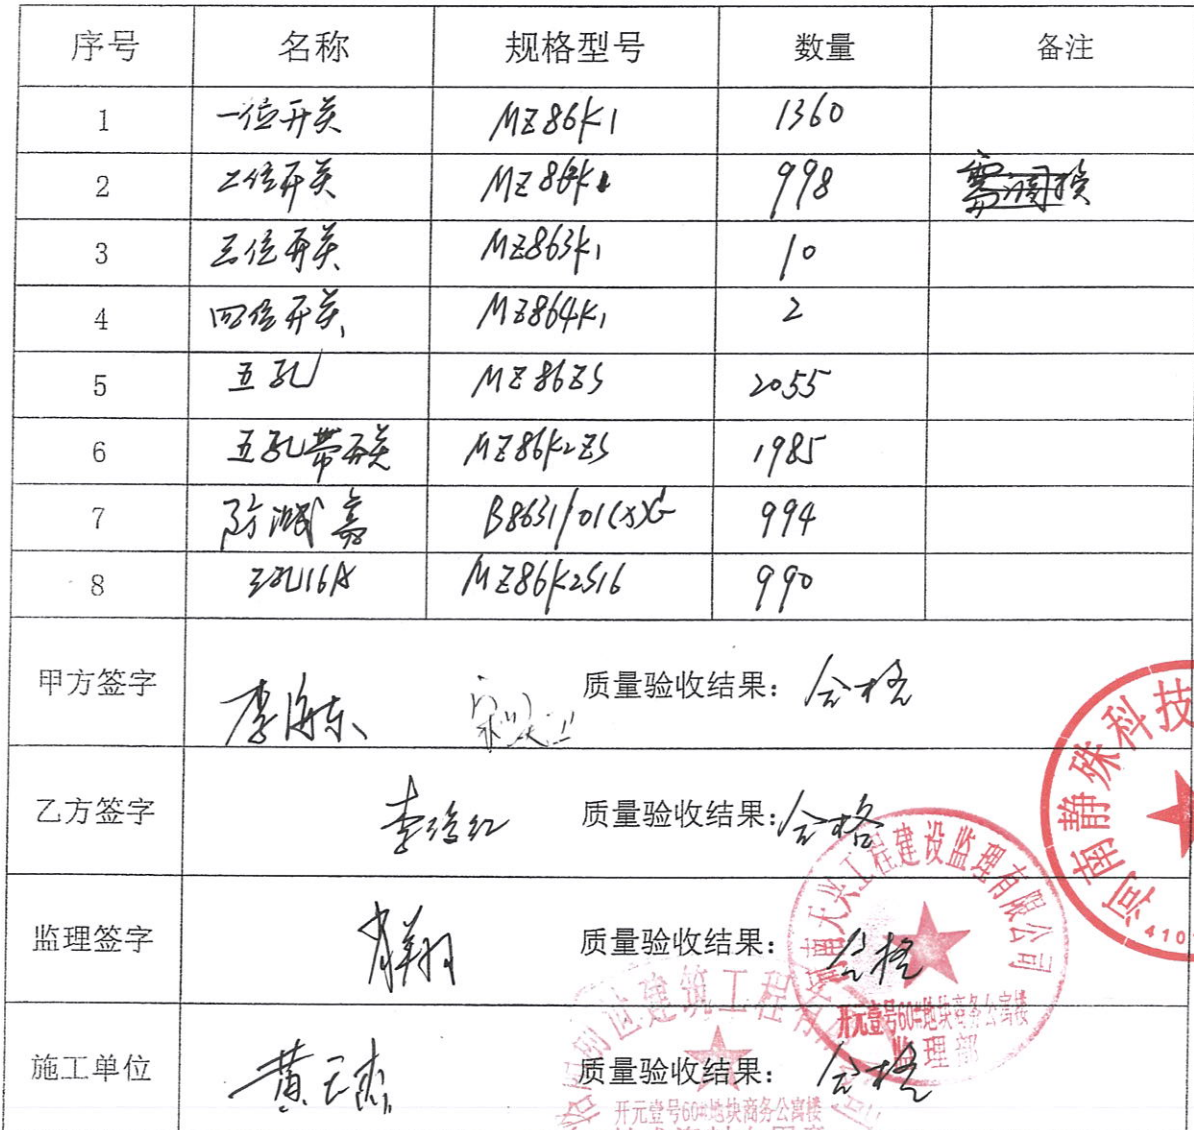 序号 名称 规格型号 数量 备注
1 一位开关 MZ86K1 1360
2 二位开关 998
3 三位开关 MZ863K1 10
4 四位开关 MZ864K1 2
5 五孔 MZ86ZS 2055
6 五孔带开关 MZ86K2ZS 1985
7 防溅 B8631/01(X)G 994
8 三孔16A MZ86K2S16 990
甲方签字 李海东 质量验收结果：合格
乙方签字 质量验收结果：合格
监理签字 肖翔 质量验收结果：合格
施工单位 质量验收结果：合格
河南静殊科技
410
河南天兴工程建设监理有限公司
开元壹号60#地块商务公寓楼
监理部
建筑工程有
开元壹号60#地块商务公寓楼